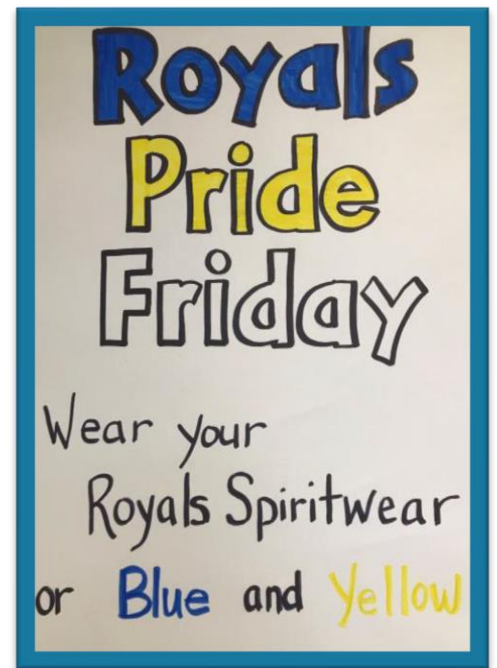 Royals
Pride
Friday
Wear your
Royals Spiritwear
or Blue and Yellow